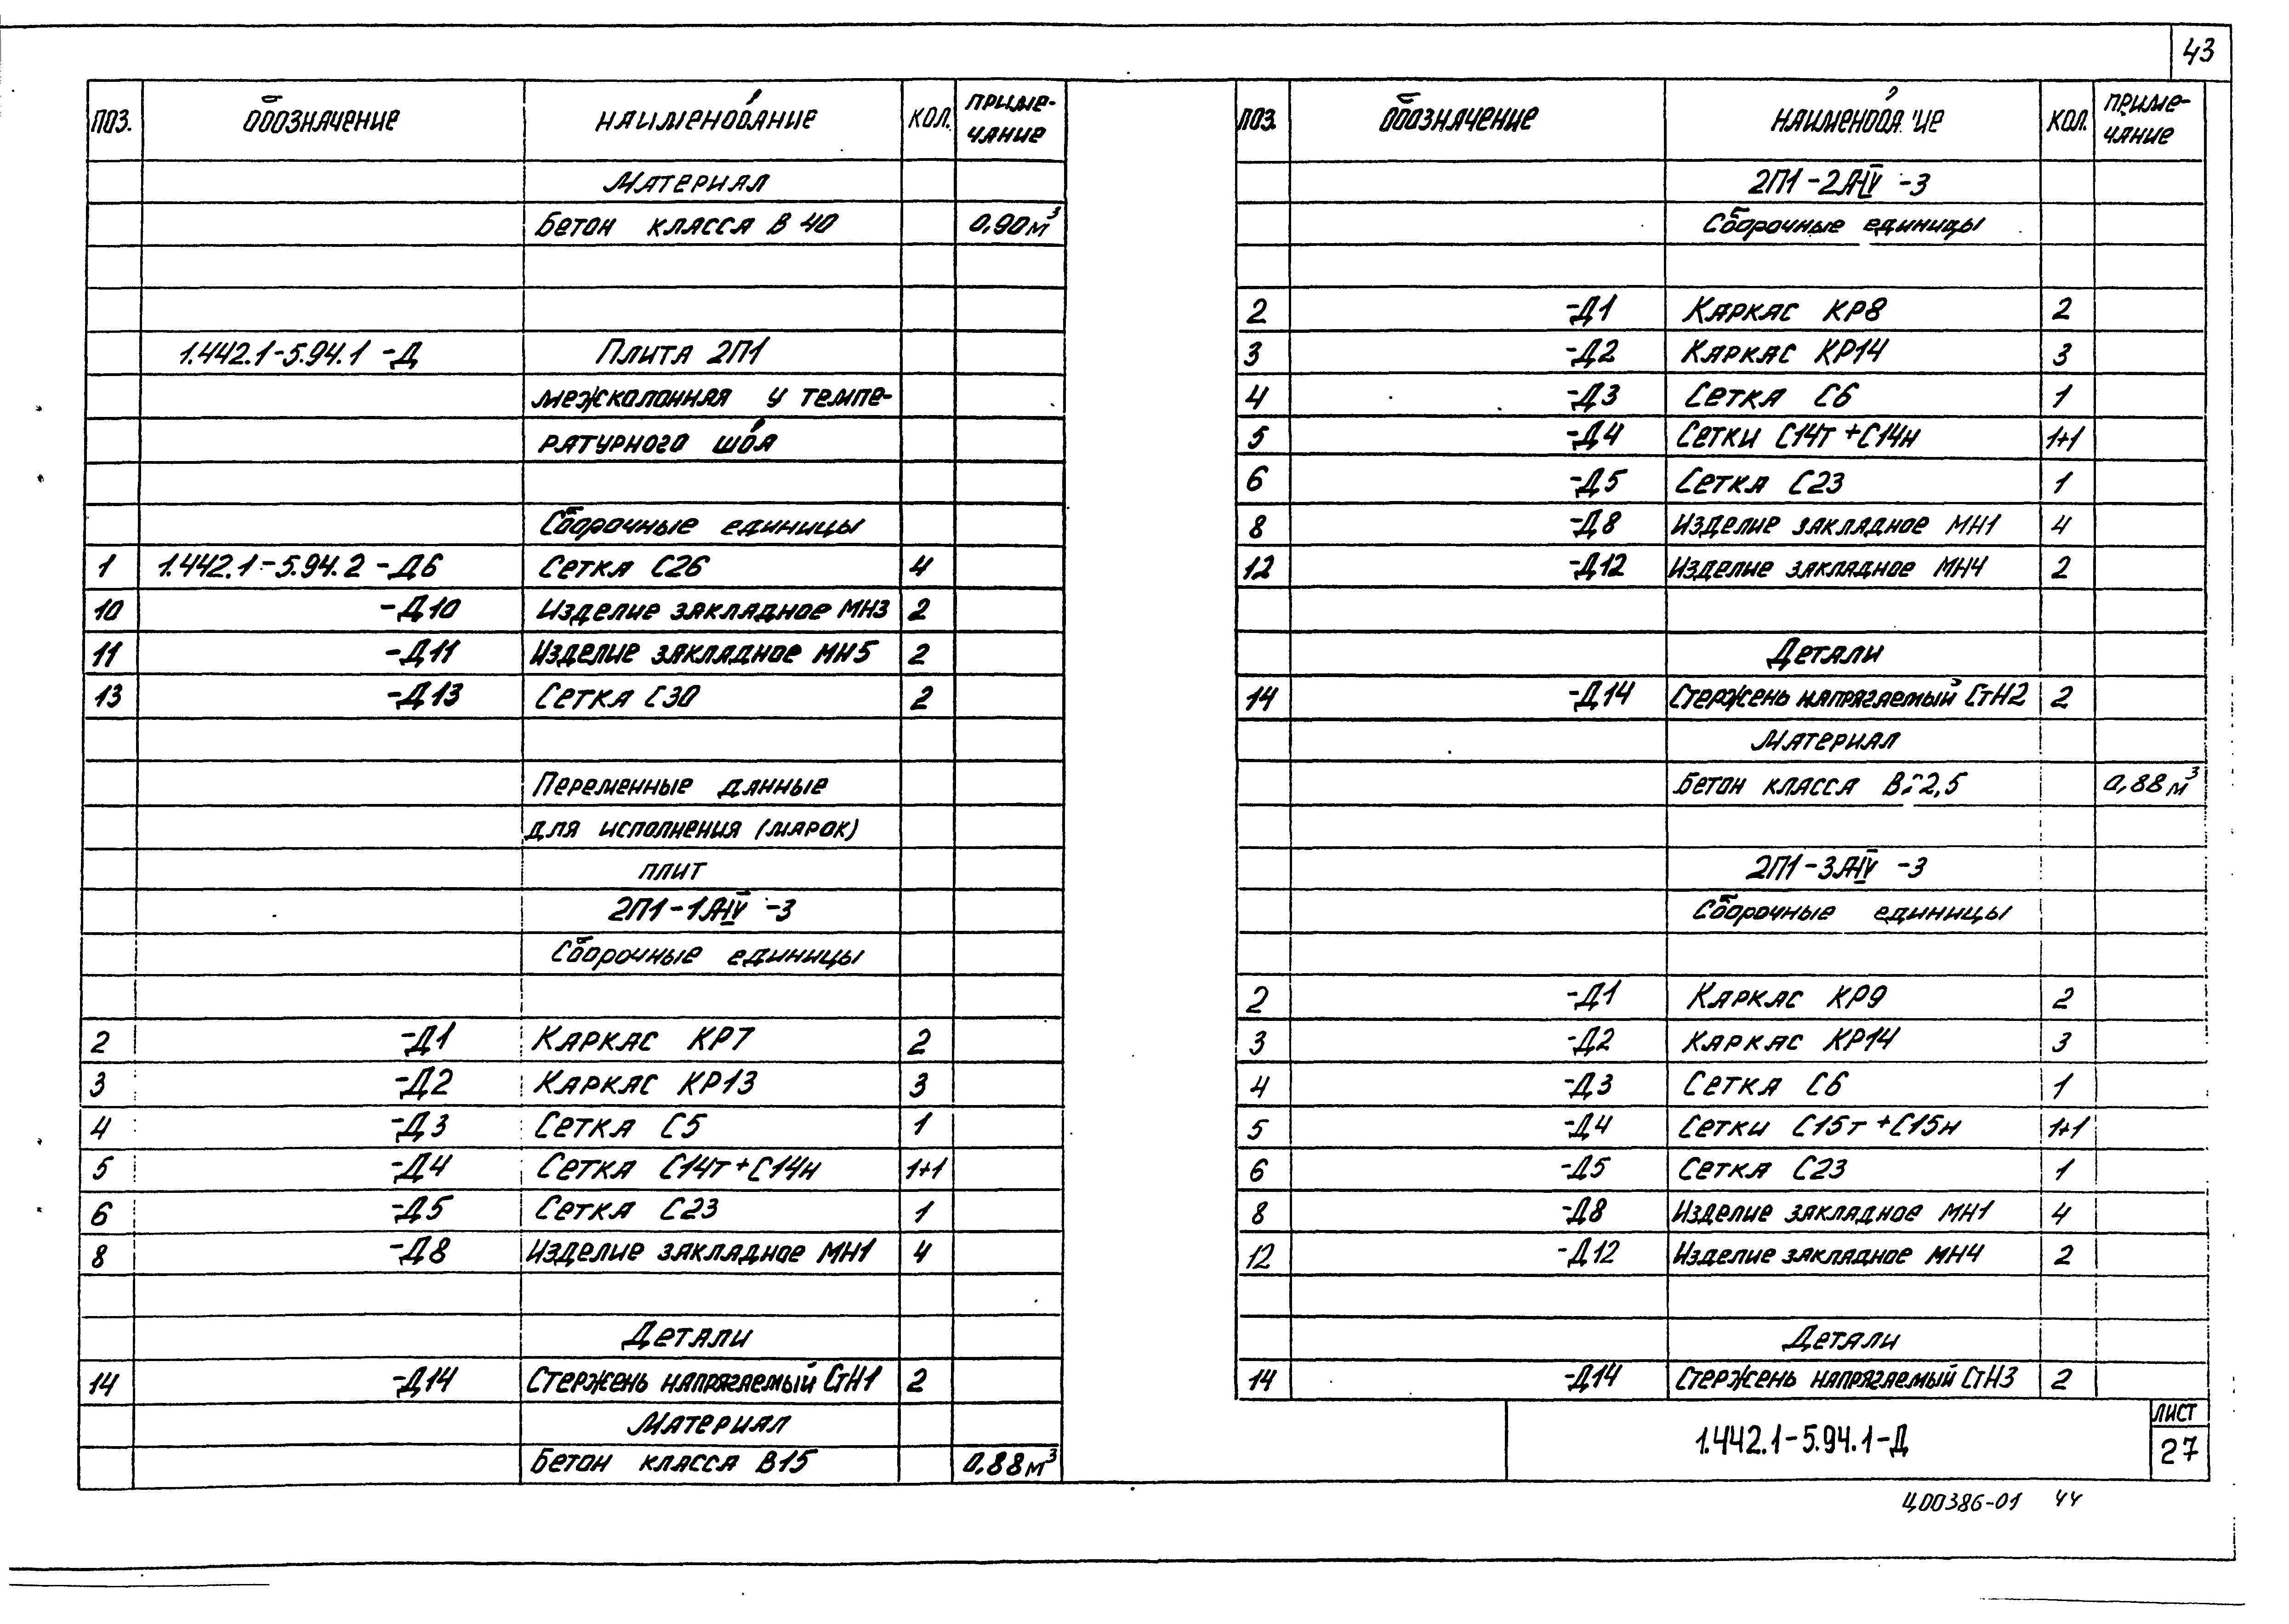 43
ПОЗ. ОБОЗНАЧЕНИЕ НАИМЕНОВАНИЕ КОЛ. ПРИМЕ-
ЧАНИЕ
Материал
Бетон класса В 40 0,90м³
1.442.1-5.94.1 -Д Плита 2П1
межколонная у темпе-
ратурного шва
Сборочные единицы
1 1.442.1-5.94.2 -Д6 Сетка С26 4
10 -Д10 Изделие закладное МН3 2
11 -Д11 Изделие закладное МН5 2
13 -Д13 Сетка С30 2
Переменные данные
для исполнения (марок)
плит
2П1-1АIV -3
Сборочные единицы
2 -Д1 Каркас КР7 2
3 -Д2 Каркас КР13 3
4 -Д3 Сетка С5 1
5 -Д4 Сетка С14т+С14н 1+1
6 -Д5 Сетка С23 1
8 -Д8 Изделие закладное МН1 4
Детали
14 -Д14 Стержень напрягаемый СтН1 2
Материал
Бетон класса В15 0,88м³
ПОЗ. ОБОЗНАЧЕНИЕ КОЛ. ПРИМЕ-
ЧАНИЕ
2П1-2АIV -3
Сборочные единицы
2 -Д1 Каркас КР8 2
3 -Д2 Каркас КР14 3
4 -Д3 Сетка С6 1
5 -Д4 Сетки С14т+С14н 1+1
6 -Д5 Сетка С23 1
8 -Д8 Изделие закладное МН1 4
12 -Д12 Изделие закладное МН4 2
Детали
14 -Д14 Стержень напрягаемый СтН2 2
Материал
Бетон класса 0,88м³
2П1-3АIV -3
Сборочные единицы
2 -Д1 Каркас КР9 2
3 -Д2 Каркас КР14 3
4 -Д3 Сетка С6 1
5 -Д4 Сетки С15т+С15н 1+1
6 -Д5 Сетка С23 1
8 -Д8 Изделие закладное МН1 4
12 -Д12 Изделие закладное МН4 2
Детали
14 -Д14 Стержень напрягаемый СтН3 2
1.442.1-5.94.1-Д
ЛИСТ
27
Ц00386-01 44